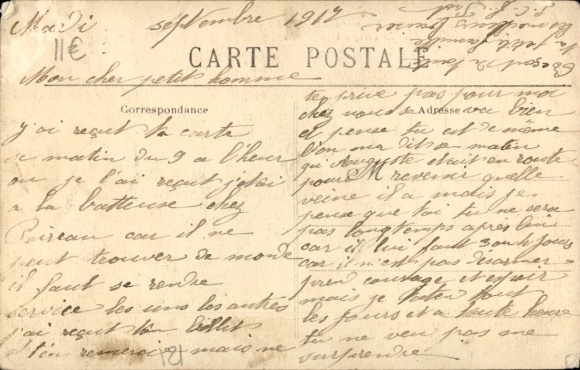 Mardi septembre 1917
11€
CARTE POSTALE
Mon cher petit homme
Correspondance
j'ai reçut ta carte
ce matin du 9 a l'heur
ou je l'ai reçut j'etai
a la batteuse chez
Poireau car il ne
peut trouver de monde
il faut se rendre
service les uns les autres
j'ai reçut ton billet
t'en remerci mais ne
te prive pas pour moi
Adresse
chez nous sa va bien
et pense tu est de meme
l'on ma dit se matin
qu'Auguste etait en route
pour revenir quelle
veine il a mais je
pense que toi tu ne sera
pas longtemps apres lui
car il lui faut 3 ou 4 jours
car il n'est pas désarmer
pren courage et espoir
mais je taten tout
les jours et a toute heure
tu ne veu pas me
surprendre
ta petite famille